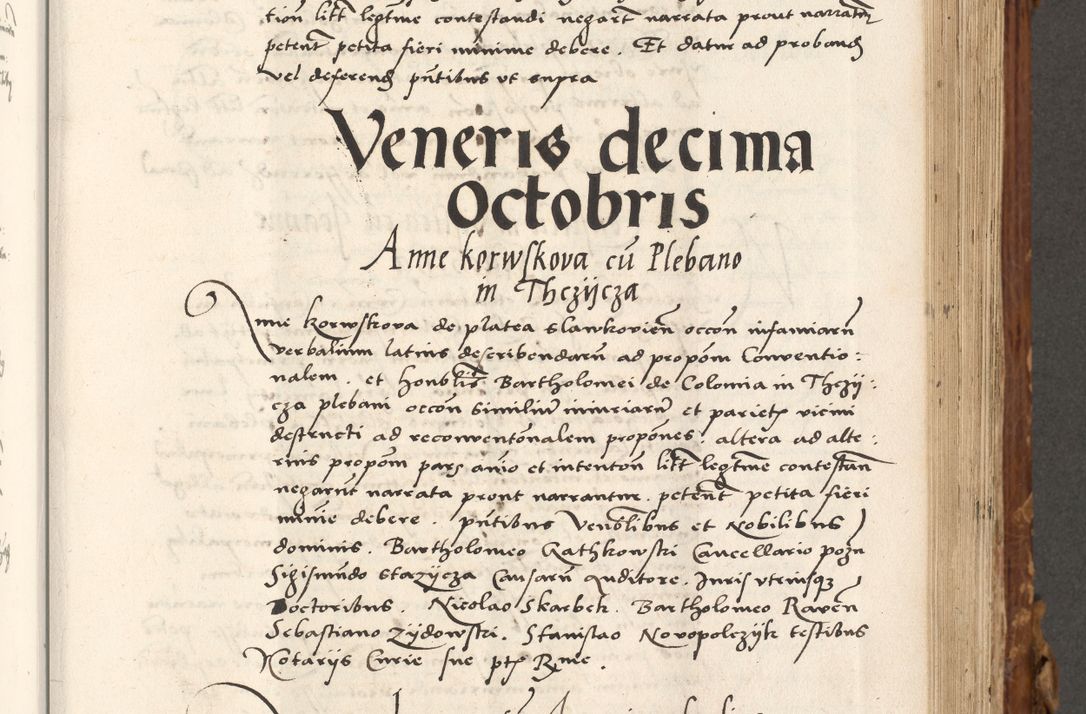 tion litt legtme contestandi negart narrata prout narratur
petent petita fieri minime debere. Et datur ad proband
vel deferend pntibus ut supra
Veneris decima
Octobris
Anne korwskova cū Plebano
in Thczijcza
Anne korwskova de platea slawkovien occon infamiarū
verbalium latius describendarū ad propom Conventio:
nalem. et honblis Bartholomei de Colonia in Thczij:
cza plebani occon similiū iniuriarū et parietz vicini
destructi ad reconventonalem propones. altera ad alte:
rius propom pars anio et intenton litt legtme contestan
negarūt narrata prout narrantur. petent petita fieri
minie debere. pntibus Venblibus et Nobilibus
dominis. Bartholomeo Gathkowski Cancellario pozn
Sigismūdo starzijcza Causarū Auditore. Juris utriusqz
Doctoribus. Nicolao Skarbek. Bartholomeo Raven
Sebastiano Zijdowski. Stanislao Novopolczijk testibus
Notarijs Curie sue ptz Rme.